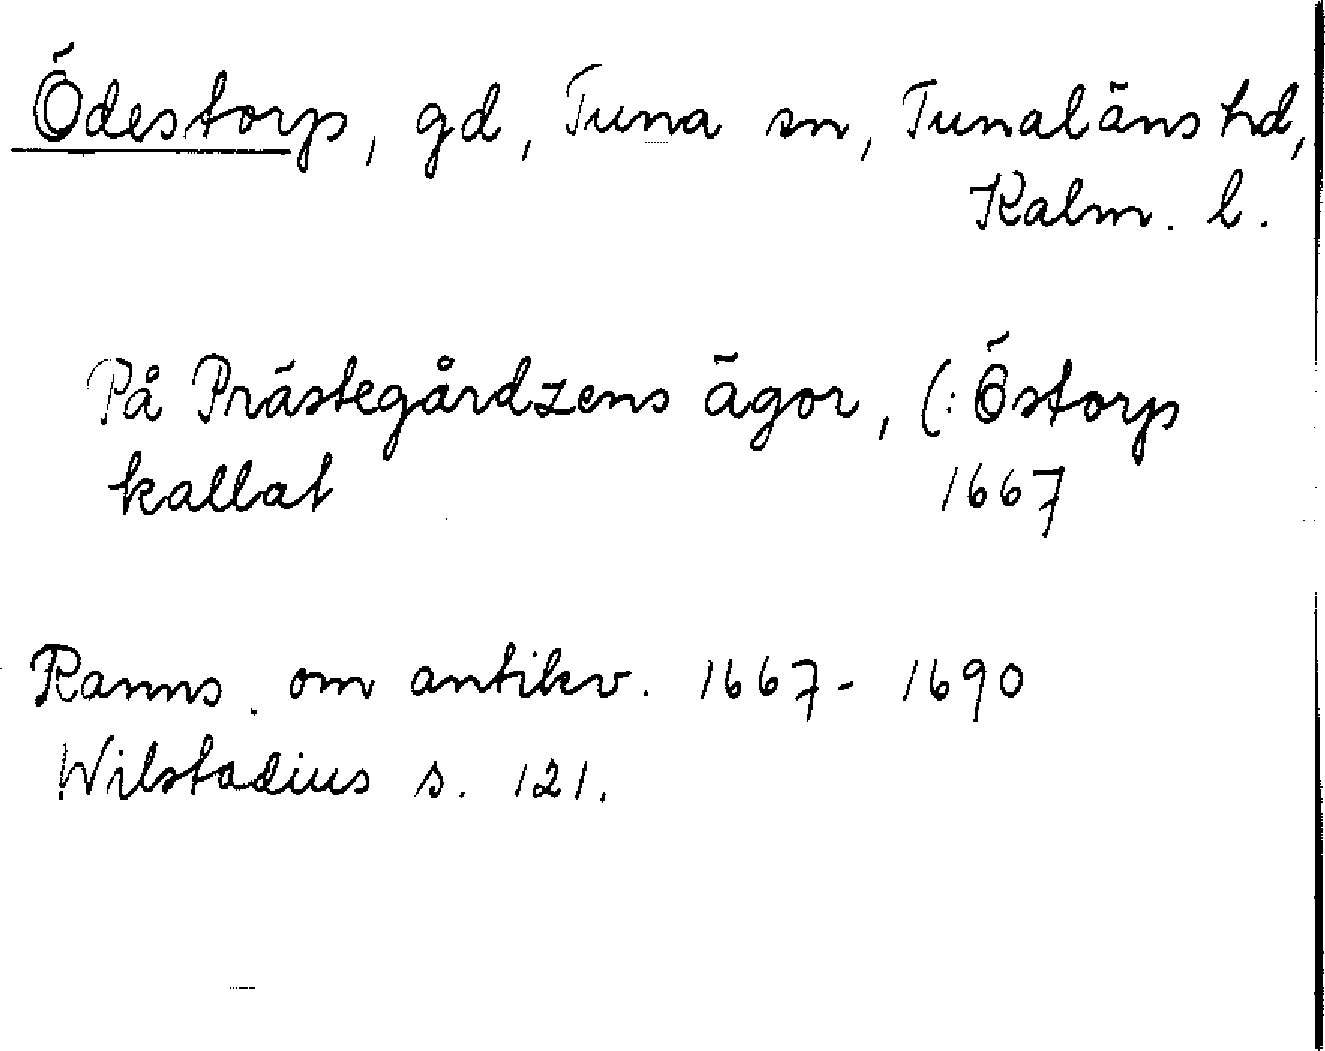 Ödestorp, gd, Tuna sn, Tunaläns hd,
Kalm. l.
På Prästegårdzens ägor, (: Östorp
kallat 1667
Ranns. om antikv. 1667- 1690
Wilstadius s. 121.